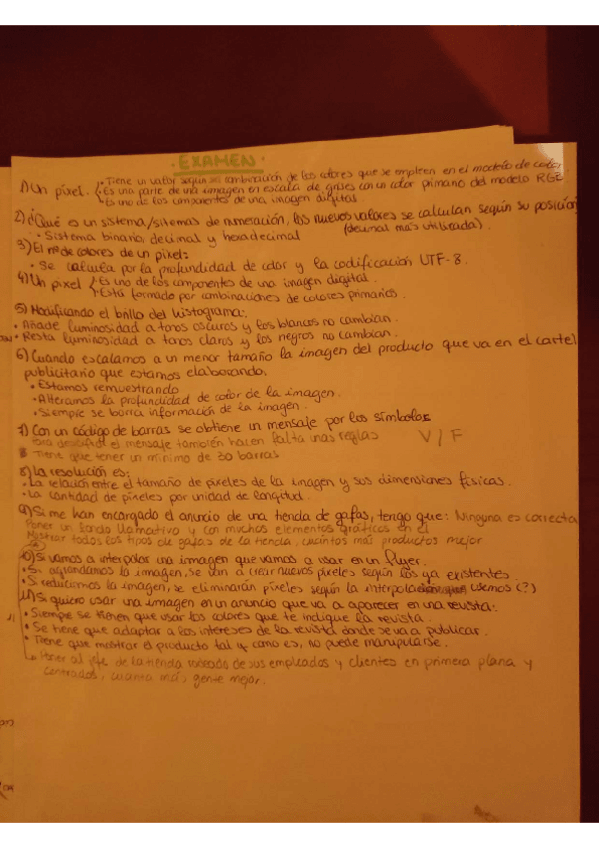 · EXAMEN ·
1) Un píxel · Tiene un valor según su combinación de los colores que se empleen en el modelo de color
· Es una parte de una imagen en escala de grises con un color primario del modelo RGB
· Es uno de los componentes de una imagen digital
2) ¿Qué es un sistema/sitemas de numeración, los nuevos valores se calculan según su posición
· Sistema binario, decimal y hexadecimal (decimal más utilizado).
3) El nº de colores de un pixel:
· Se calcula por la profundidad de color y la codificación UTF-8.
4) Un pixel · Es uno de los componentes de una imagen digital.
· Está formado por combinaciones de colores primarios.
5) Modificando el brillo del histograma:
· Añade luminosidad a tonos oscuros y los blancos no cambian.
· Resta luminosidad a tonos claros y los negros no cambian.
6) Cuando escalamos a un menor tamaño la imagen del producto que va en el cartel
publicitario que estamos elaborando.
· Estamos remuestrando
· Alteramos la profundidad de color de la imagen.
· Siempre se borra información de la imagen.
7) Con un código de barras se obtiene un mensaje por los símbolos
Para descifrar el mensaje también hacen falta unas reglas V / F
Tiene que tener un mínimo de 30 barras
8) La resolución es:
· La relación entre el tamaño de píxeles de la imagen y sus dimensiones físicas.
· La cantidad de píxeles por unidad de longitud.
9) Si me han encargado el anuncio de una tienda de gafas, tengo que: Ninguna es correcta
Poner un fondo llamativo y con muchos elementos gráficos en él
Mostrar todos los tipos de gafas de la tienda, cuantos más productos mejor
10) Si vamos a interpolar una imagen que vamos a usar en un flyer.
· Si agrandamos la imagen, se van a crear nuevos píxeles según los ya existentes.
· Si reducimos la imagen, se eliminarán píxeles según la usemos (?)
11) Si quiero usar una imagen en un anuncio que va a aparecer en una revista:
· Siempre se tienen que usar los colores que te indique la revista.
· Se tiene que adaptar a los intereses de la revista donde se va a publicar.
· Tiene que mostrar el producto tal y como es, no puede manipularse.
Poner al jefe de la tienda rodeado de sus empleados y clientes en primera plana y
centrados, cuanta más gente mejor.